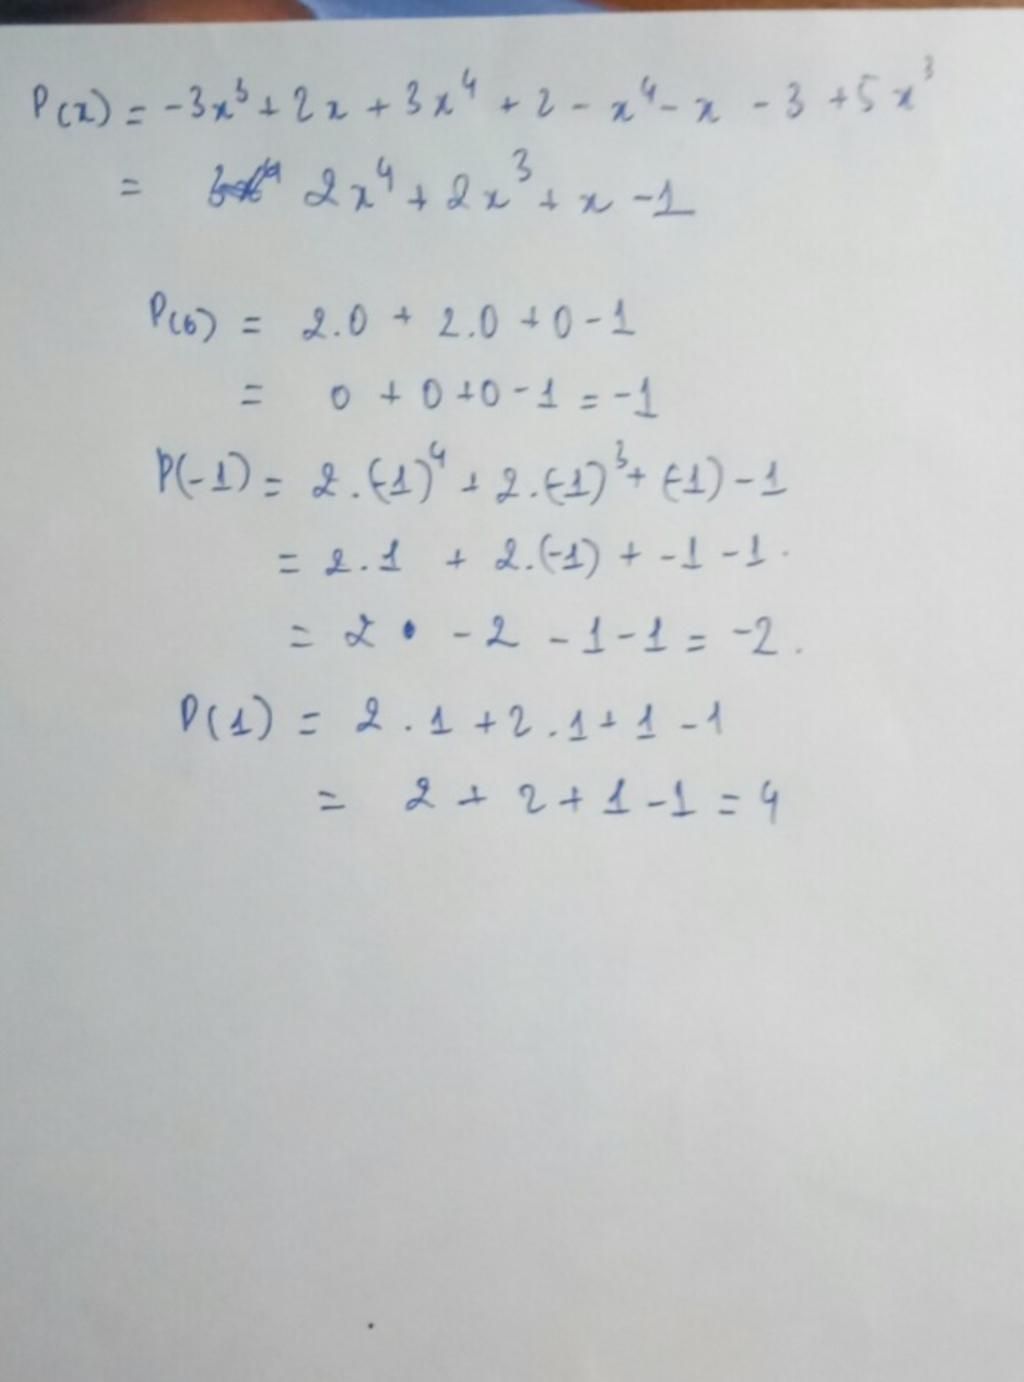 P(x) = -3x³ + 2x + 3x⁴ + 2 - x⁴ - x - 3 + 5x³
= 2x⁴ + 2x³ + x - 1
P(0) = 2.0 + 2.0 + 0 - 1
= 0 + 0 + 0 - 1 = -1
P(-1) = 2.(-1)⁴ + 2.(-1)³ + (-1) - 1
= 2.1 + 2.(-1) + -1 - 1.
= 2 - 2 - 1 - 1 = -2.
P(1) = 2.1 + 2.1 + 1 - 1
= 2 + 2 + 1 - 1 = 4